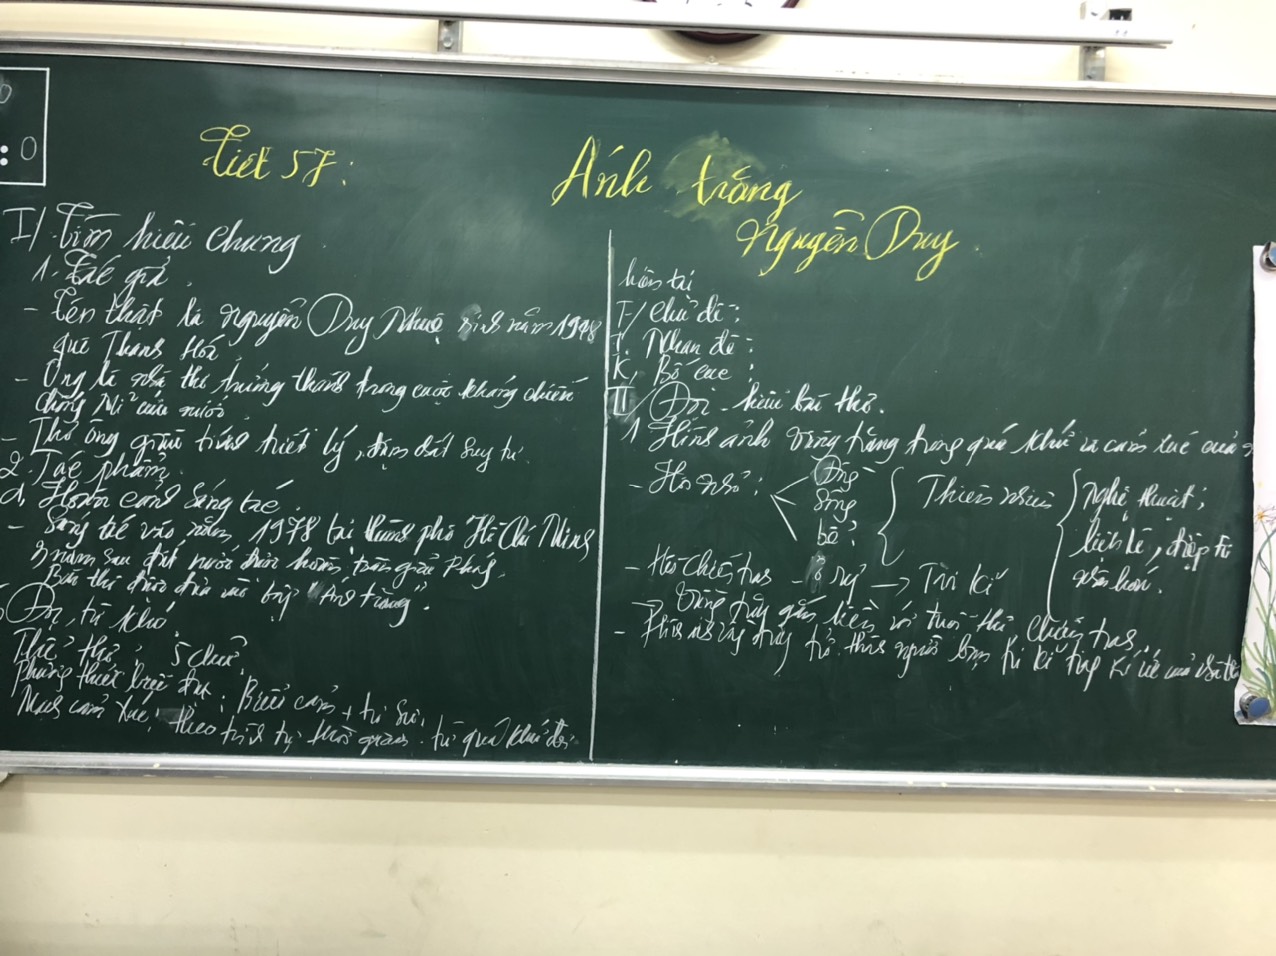 Tiết 57:
Ánh trăng
Nguyễn Duy.
I/ Tìm hiểu chung
1. Tác giả.
- Tên thật là Nguyễn Duy Nhuệ sinh năm 1948
quê Thanh Hoá
- Ông là nhà thơ trưởng thành trong cuộc kháng chiến
chống Mĩ cứu nước.
- Thơ ông giàu tính triết lý, đậm chất suy tư.
2. Tác phẩm
a, Hoàn cảnh sáng tác
- Sáng tác vào năm 1978 tại thành phố Hồ Chí Minh
3 năm sau đất nước được hoàn toàn giải phóng.
Bài thơ được đưa vào tập "Ánh trăng".
Đọc, từ khó
Thể thơ: 5 chữ
Phương thức biểu đạt: Biểu cảm + tự sự.
Mạch cảm xúc: theo trình tự thời gian từ quá khứ đến
hiện tại
Chủ đề:
Nhan đề:
Bố cục:
II/ Đọc - hiểu bài thơ.
1. Hình ảnh vầng trăng trong quá khứ và cảm xúc của
- Hồi nhỏ: đồng
sông
bể
Thiên nhiên
Nghệ thuật:
liệt kê, điệp từ
nhân hoá.
- Hồi chiến tranh - ở rừng → Tri kỉ
Vầng trăng gắn liền với tuổi thơ chiến tranh